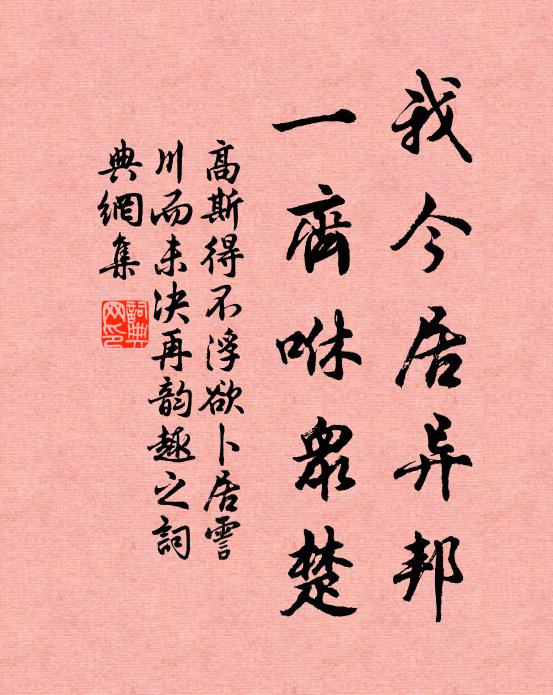 我今居异邦
一齊咻衆楚
高斯得不浮欲卜居霅
川而未決再韵趣之詞
典網集
詞典网印